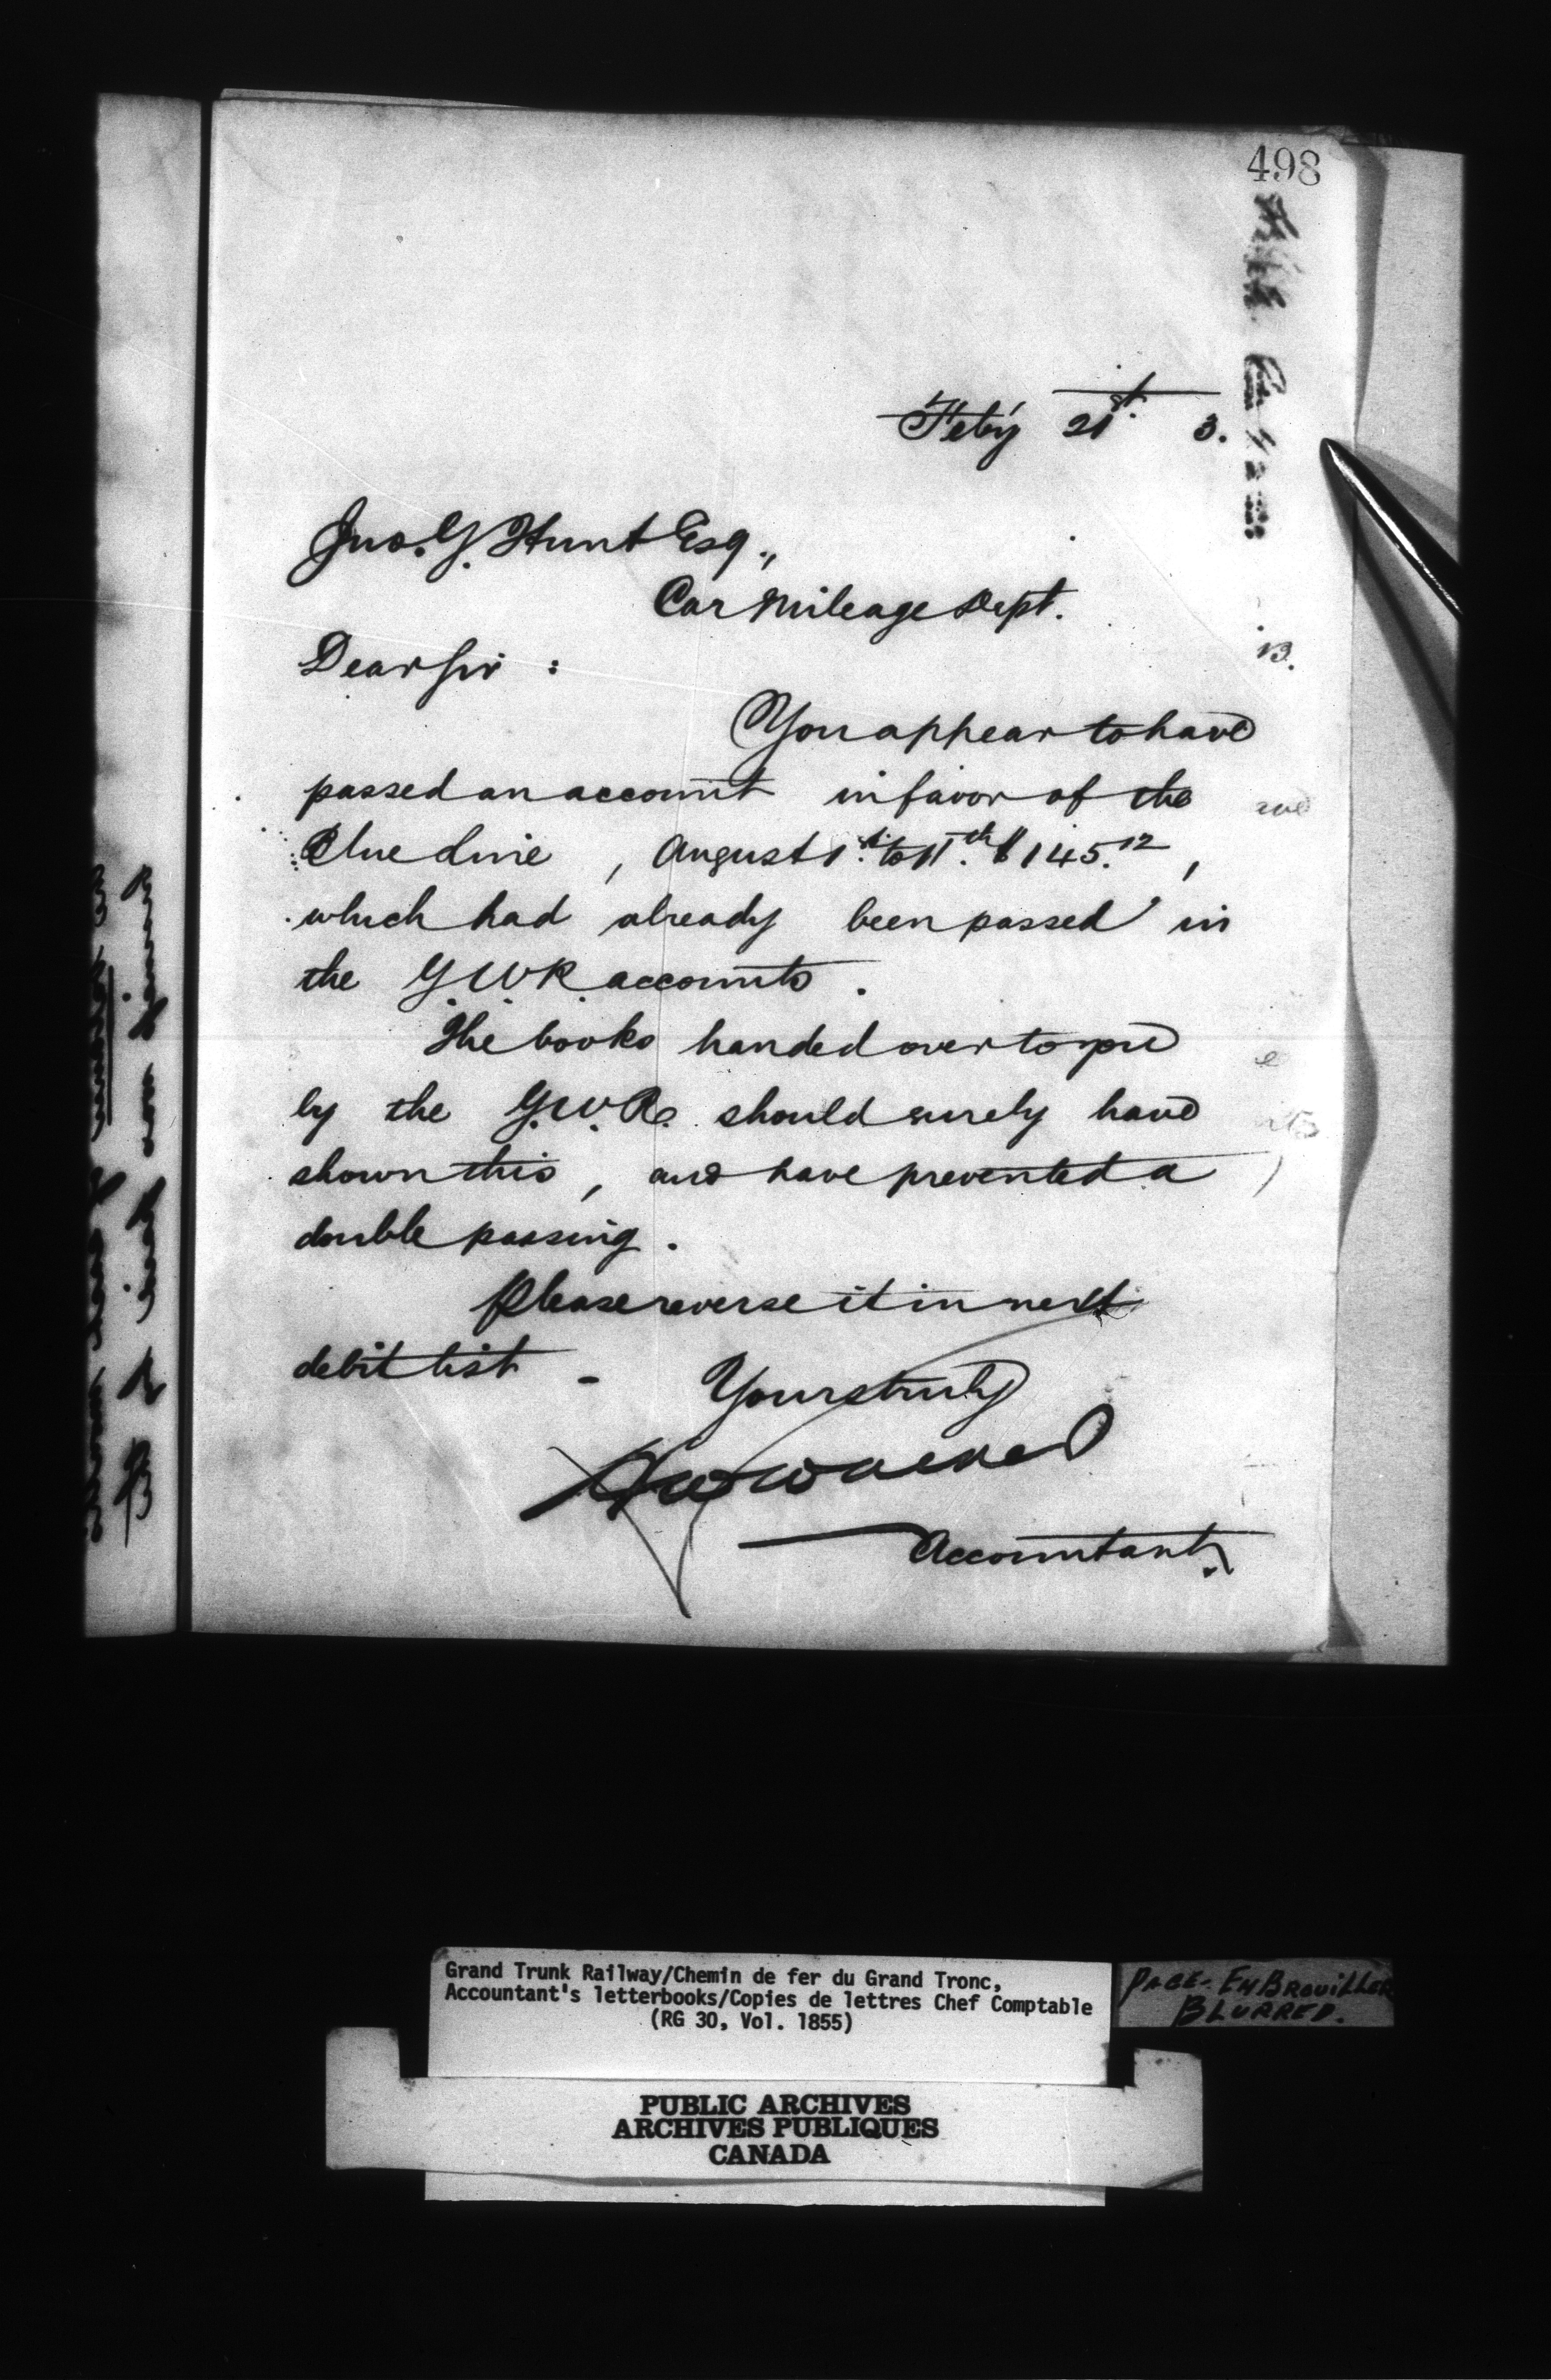 498
Feby 21st 3.
Jno. G. Hunt Esq.,
Car Mileage Dept.
Dear Sir :
You appear to have
passed an account in favor of the
Blue Line , August 1st to 11th $145.12,
which had already been passed in
the G.W.R. accounts .
The books handed over to you
by the G.W.R. should surely have
shown this , and have prevented a
double passing .
Please reverse it in next
debit list -
Yours truly
Accountant.
Grand Trunk Railway/Chemin de fer du Grand Tronc,
Accountant's letterbooks/Copies de lettres Chef Comptable
(RG 30, Vol. 1855)
PAGE- EMBROUILLER
BLURRED.
PUBLIC ARCHIVES
ARCHIVES PUBLIQUES
CANADA